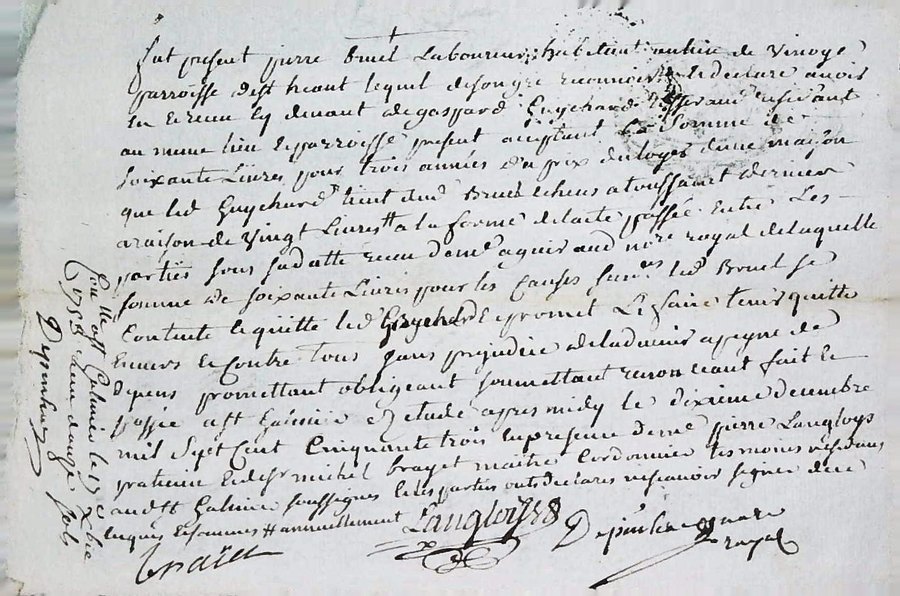 fut present pierre bruel Laboureur habitant au lieu de Vinoge
parroisse de st heant lequel de son gre reconnoit et declare avoir
eu et receu cy devant de gaspard Guychard residant
au meme lieu et parroisse present acceptant La Somme de
soixante Livres pour trois années du prix du loyer d'une maison
que led Guychard tient dud Bruel echeus a toussaint dernier
a raison de Vingt Livres ## a la forme de lacte passée Entre Les
parties sous sa datte receu de me aguiraud nore royal de laquelle
somme de soixante Livres pour les Causes susd led Bruel se
Contente et quitte led Guychard Et promet Le faire tenir quitte
Envers et Contre tous sans prejudice de a peyne de
depens promettant obligeant soummettant renonceant fait et
passée a st Galmier Etude apres midy le dixieme decembre
mil Sept Cent Cinquante trois En presence de me pierre Langloys
praticien et de sr michel brayet maitre Cordonnier temoins residans
aud st Galmier soussignes et les parties ont declarés ne scavoir signer de ce
Enquis Et sommes ## annuellement Langloys
Brayet
nore
royal
Con lle a st Galmier le 17 xbre
1753 receu douze sols